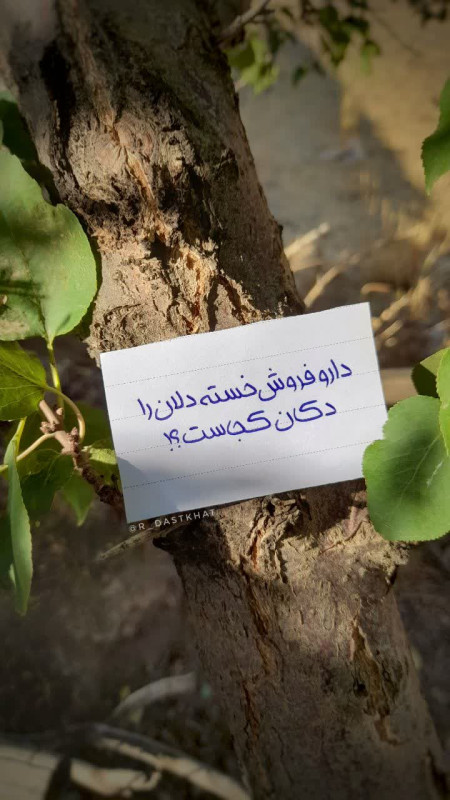 دارو فروش خسته دلان را
دکان کجاست؟!
@R_DASTKHAT